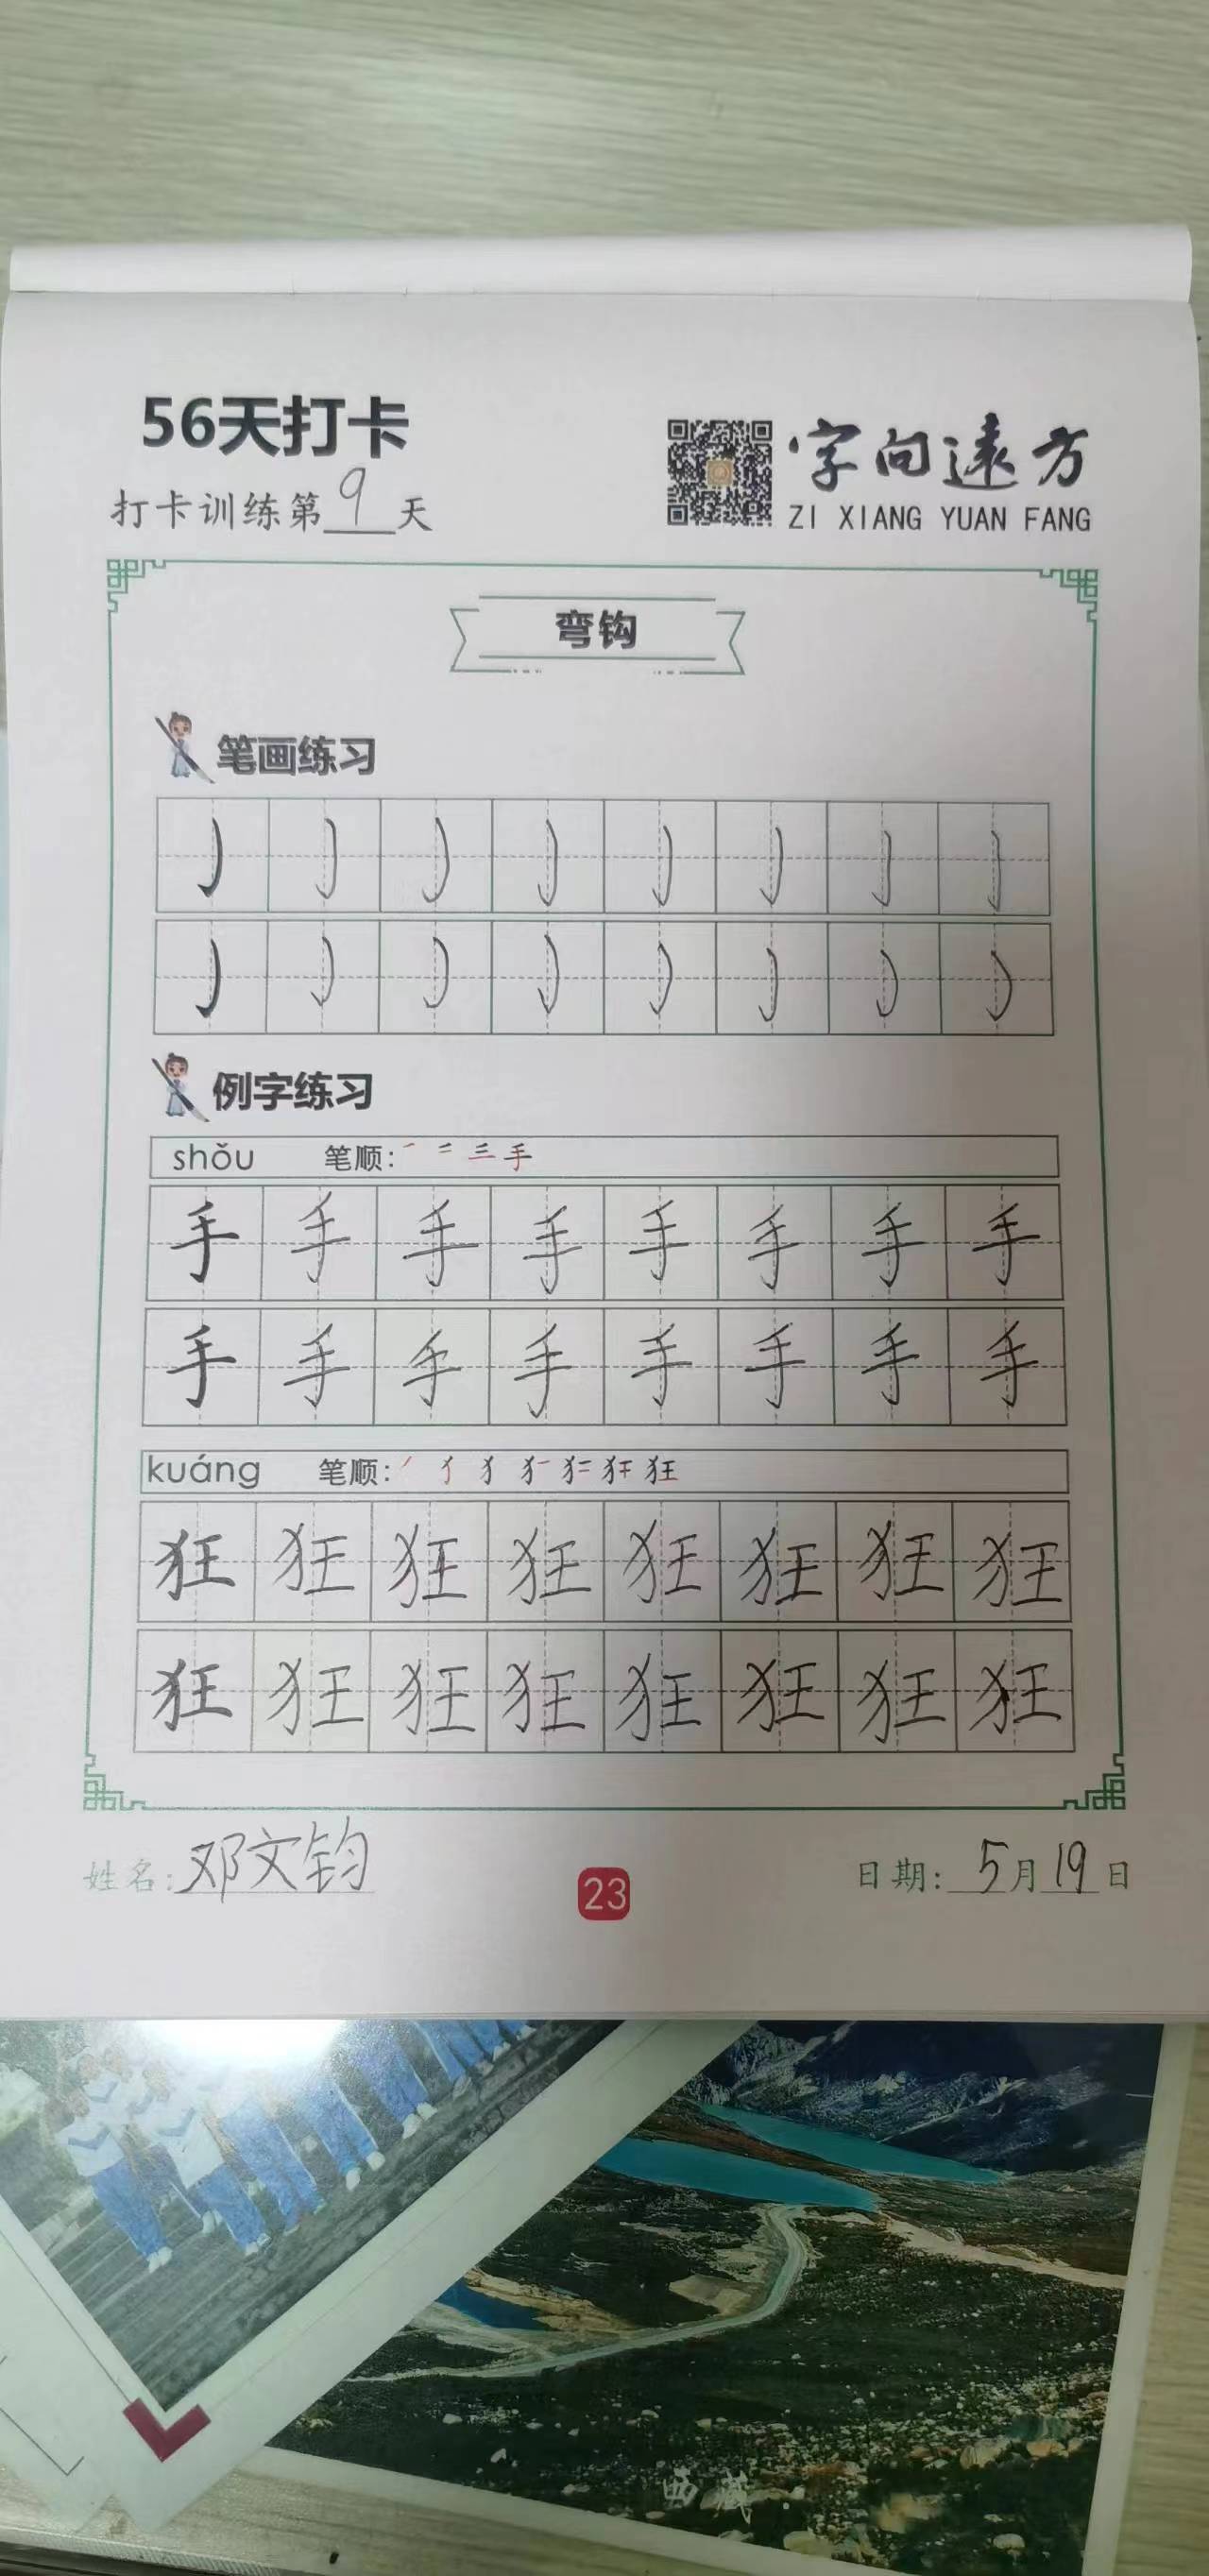 56天打卡
打卡训练第9天
字向遠方
ZI XIANG YUAN FANG
弯钩
笔画练习
㇁ ㇁ ㇁ ㇁ ㇁ ㇁ ㇁ ㇁
㇁ ㇁ ㇁ ㇁ ㇁ ㇁ ㇁ ㇁
例字练习
shǒu 笔顺: ㇒ 二 三 手
手 手 手 手 手 手 手 手
手 手 手 手 手 手 手 手
kuáng 笔顺: 狂
狂 狂 狂 狂 狂 狂 狂 狂
狂 狂 狂 狂 狂 狂 狂 狂
姓名: 邓文钧
23
日期: 5月19日
西藏